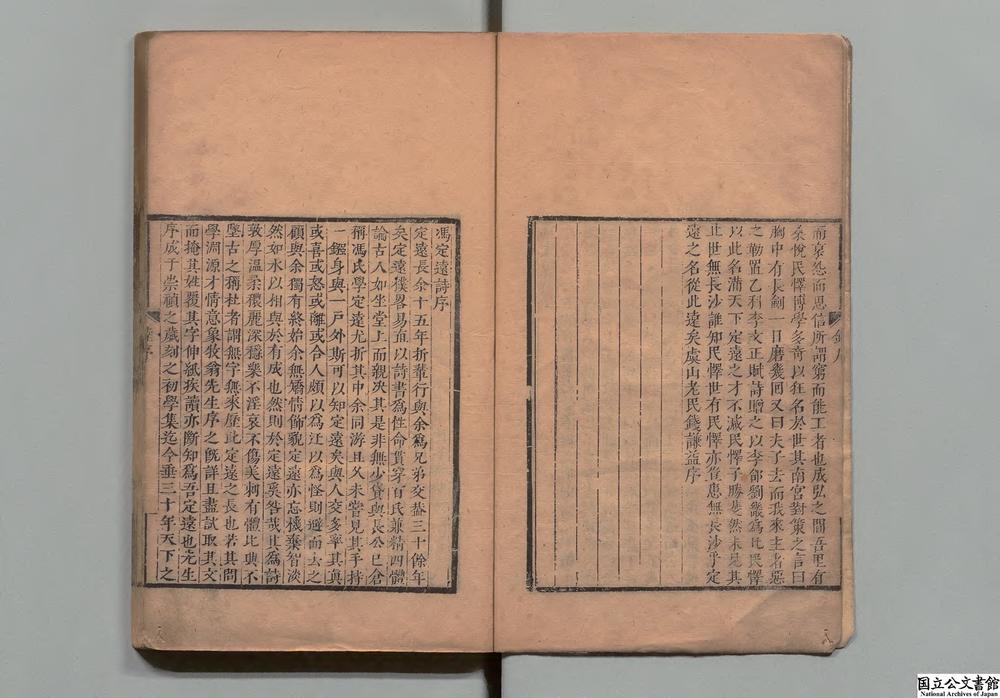 而哀怨而思信所謂窮而能工者也成弘之間吾里有
桑悅民懌博學多奇以狂名於世其南宮對策之言曰
胸中有長劍一日磨幾回又曰夫子去而我來主者惡
之勒置乙科李文正賦詩贈之以李郃劉蕡為比民懌
以此名滿天下定遠之才不減民懌子勝斐然未見其
止世無長沙誰知民懌世有民懌亦豈患無長沙乎定
遠之名從此遠矣虞山老民錢謙益序
馮定遠詩序
定遠長余十五年折輩行與余為兄弟交葢三十餘年
矣定遠樸畧易直以詩書為性命貫穿百氏兼精四體
論古人如坐堂上而親决其是非無少貸與長公已倉
稱馮氏學定遠尤折其中余同游且久未嘗見其手持
一鐙身與一戶外斯可以知定遠矣與人交多率其真
或喜或怒或離或合人頗以為迂以為怪則避而去之
顧與余獨有終始余無矯情飾貌定遠亦忘機棄智淡
然如水以相與於有成也然則於定遠奚咎哉其為詩
敦厚溫柔穠麗深穩樂不淫哀不傷美刺有體比興不
墜古之稱杜者謂無字無來歷此定遠之長也若其問
學淵源才情意象牧翁先生序之旣詳且盡試取其文
而掩其姓覆其字伸紙疾讀亦斷知為吾定遠也先生
序成于崇禎之歲刻之初學集迄今垂三十年天下之
国立公文書館
National Archives of Japan